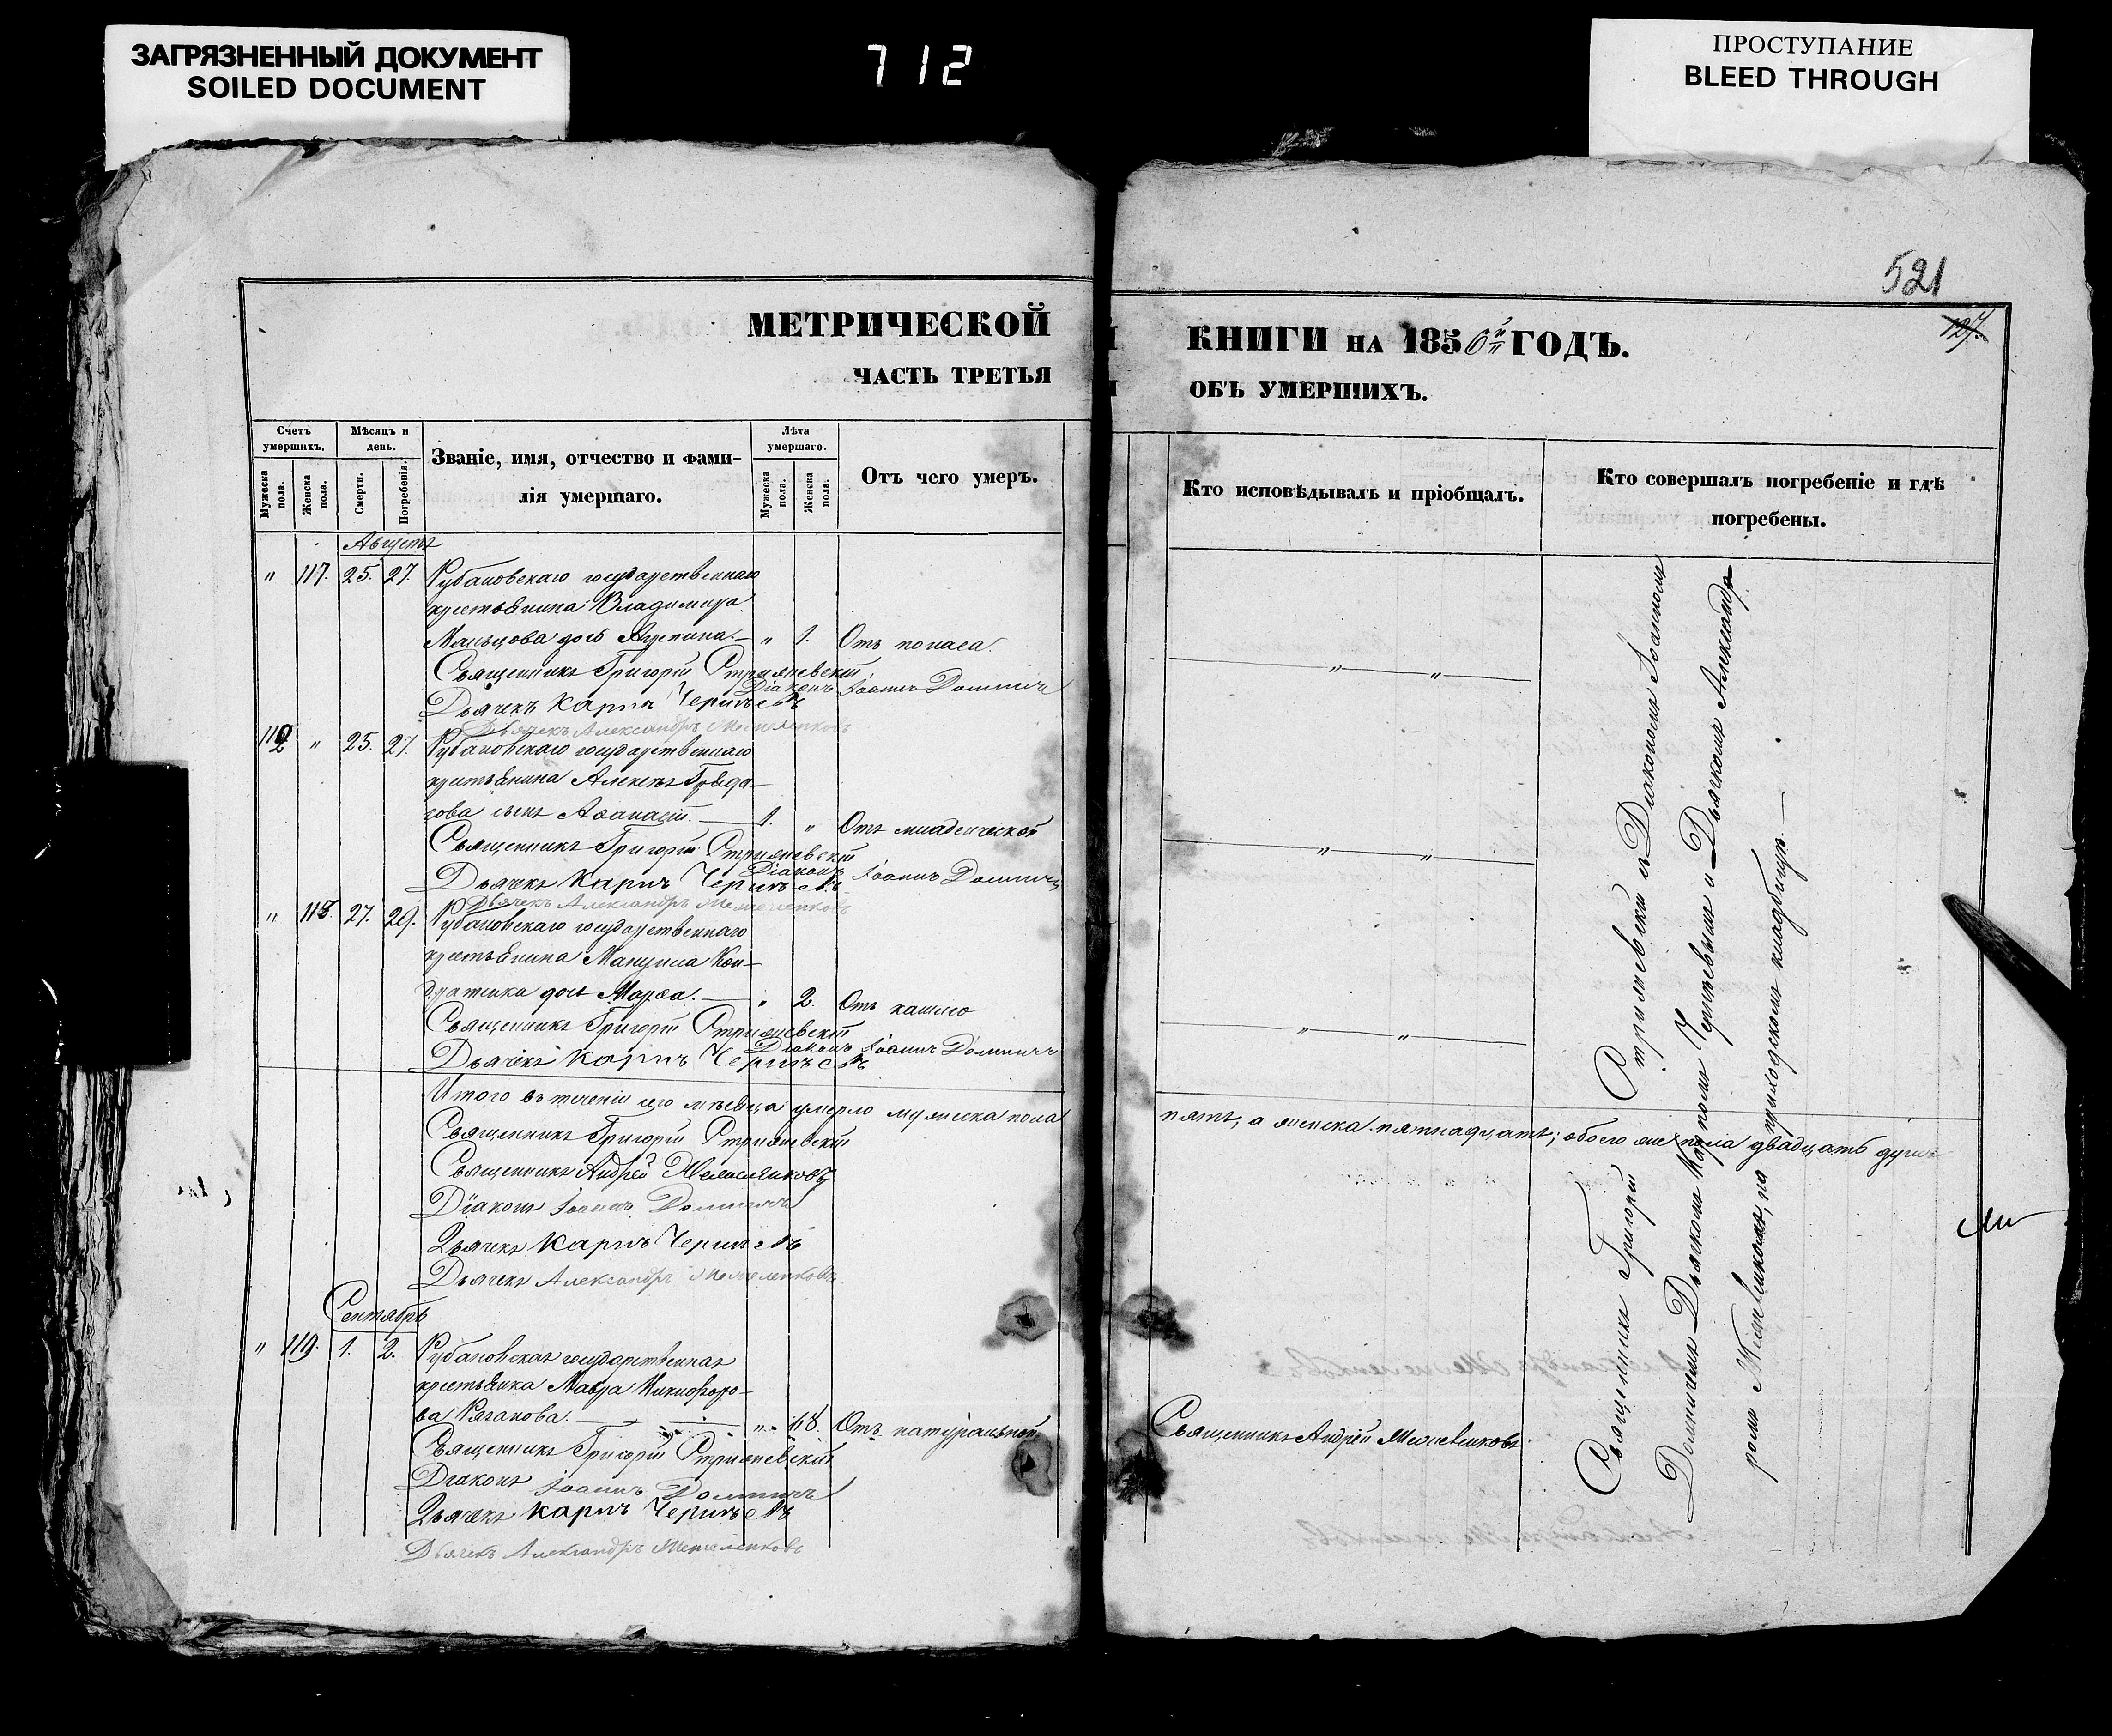 ЗАГРЯЗНЕННЫЙ ДОКУМЕНТ
SOILED DOCUMENT
712
ПРОСТУПАНИЕ
BLEED THROUGH
521
127.
МЕТРИЧЕСКОЙ
ЧАСТЬ ТРЕТЬЯ
КНИГИ НА 1856й ГОДЪ.
ОБЪ УМЕРШИХЪ.
Счетъ умершихъ.
Мужеска пола.
Женска пола.
Мѣсяцъ и день.
Смерти.
Погребенія.
Званіе, имя, отчество и фами-
лія умершаго.
Лѣта умершаго.
Мужеска пола.
Женска пола.
Отъ чего умеръ.
Кто исповѣдывалъ и пріобщалъ.
Кто совершалъ погребеніе и гдѣ
погребены.
Августъ
" 117. 25. 27. Рубановскаго государственнаго
крестьянина Владимира
Мальцова дочь Агрипина. " 1. Отъ поноса.
Священникъ Григорій Стрижевскій
Діаконъ Іоаннъ Доминичъ
Дьячекъ Карпъ
Дьячекъ Александръ
25. 27. Рубановскаго государственнаго
крестьянина Алексѣя
сынъ Аѳанасій. 1. " Отъ младенческой
Священникъ Григорій Стрижевскій
Діаконъ Іоаннъ Доминичъ
Дьячекъ Карпъ
Дьячекъ Александръ
" 118. 27. 29. Рубановскаго государственнаго
крестьянина Мануила Кон-
дратенка дочь Марѳа. " 2. Отъ кашлю
Священникъ Григорій Стрижевскій
Діаконъ Іоаннъ Доминичъ
Дьячекъ Карпъ
Итого въ теченіи сего мѣсяца умерло мужеска пола
пять, а женска пятнадцать; обоего же пола двадцать душъ
Священникъ Григорій Стрижевскій
Священникъ Андрей
Діаконъ Іоаннъ Доминичъ
Дьячекъ Карпъ
Дьячекъ Александръ
Сентябрь
" 119. 1. 2. Рубановская государственная
крестьянка Мавра Никифоро-
ва " 68. Отъ натуральной
Священникъ Андрей
Священникъ Григорій Стрижевскій
Діаконъ Іоаннъ Доминичъ
Дьячекъ Карпъ
Дьячекъ Александръ
Священникъ Григорій Стрижевскій съ Діакономъ Іоанномъ
Доминичемъ Дьячкомъ Карпомъ и Дьячкомъ Александ-
ромъ на приходскомъ кладбищѣ.